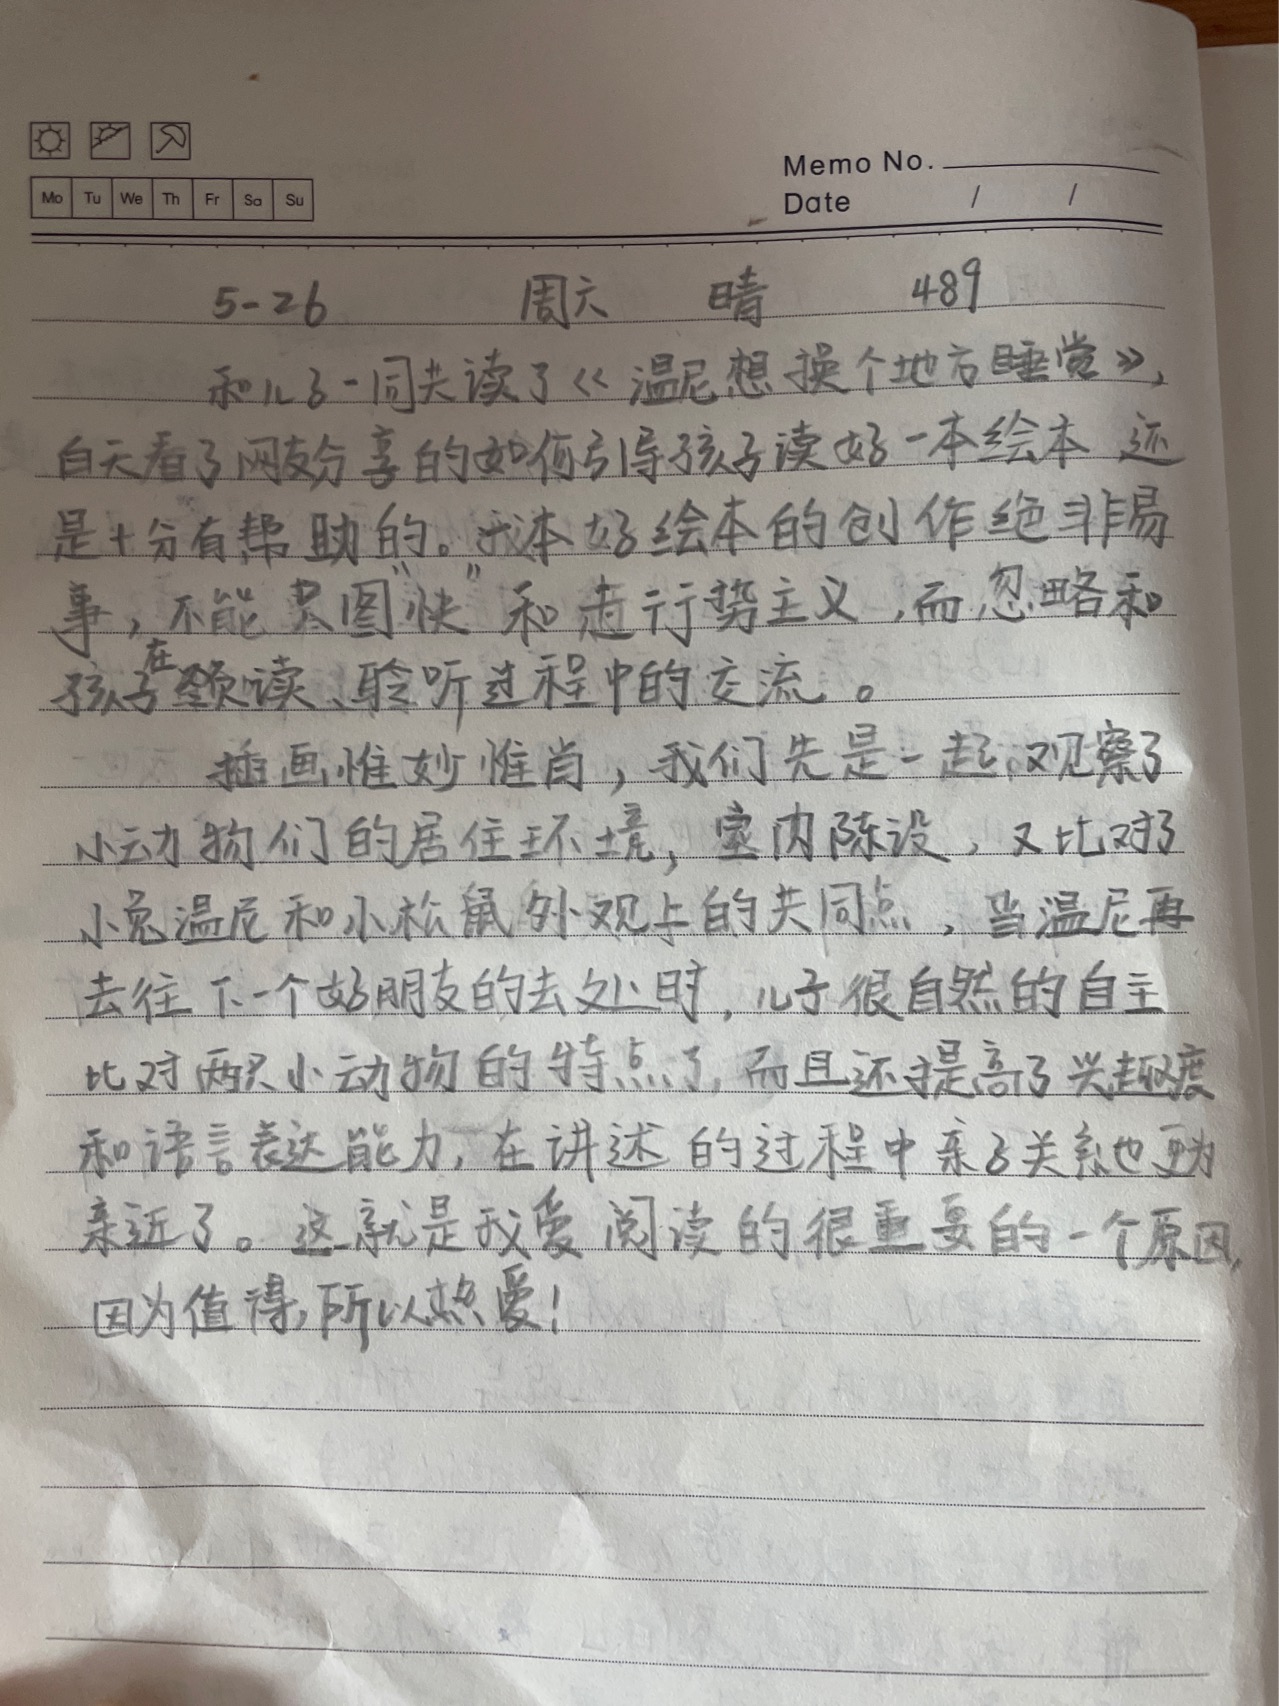 Memo No.
Mo Tu We Th Fr Sa Su
Date / /
5-26 周六 晴 489
和儿子一同共读了《温尼想换个地方睡觉》,
白天看了网友分享的如何引导孩子读好一本绘本 还
是十分有帮助的。本好绘本的创作绝非易
事,不能图“快”和走行势主义,而忽略和
孩子在读、聆听过程中的交流。
插画惟妙惟肖,我们先是一起观察了
小动物们的居住环境,室内陈设,又比对了
小兔温尼和小松鼠外观上的共同点,当温尼再
去往下一个好朋友的去处时,儿子很自然的自主
比对两只小动物的特点了,而且还提高了兴趣度
和语言表达能力,在讲述的过程中亲子关系也更为
亲近了。这就是我爱阅读的很重要的一个原因,
因为值得,所以热爱!